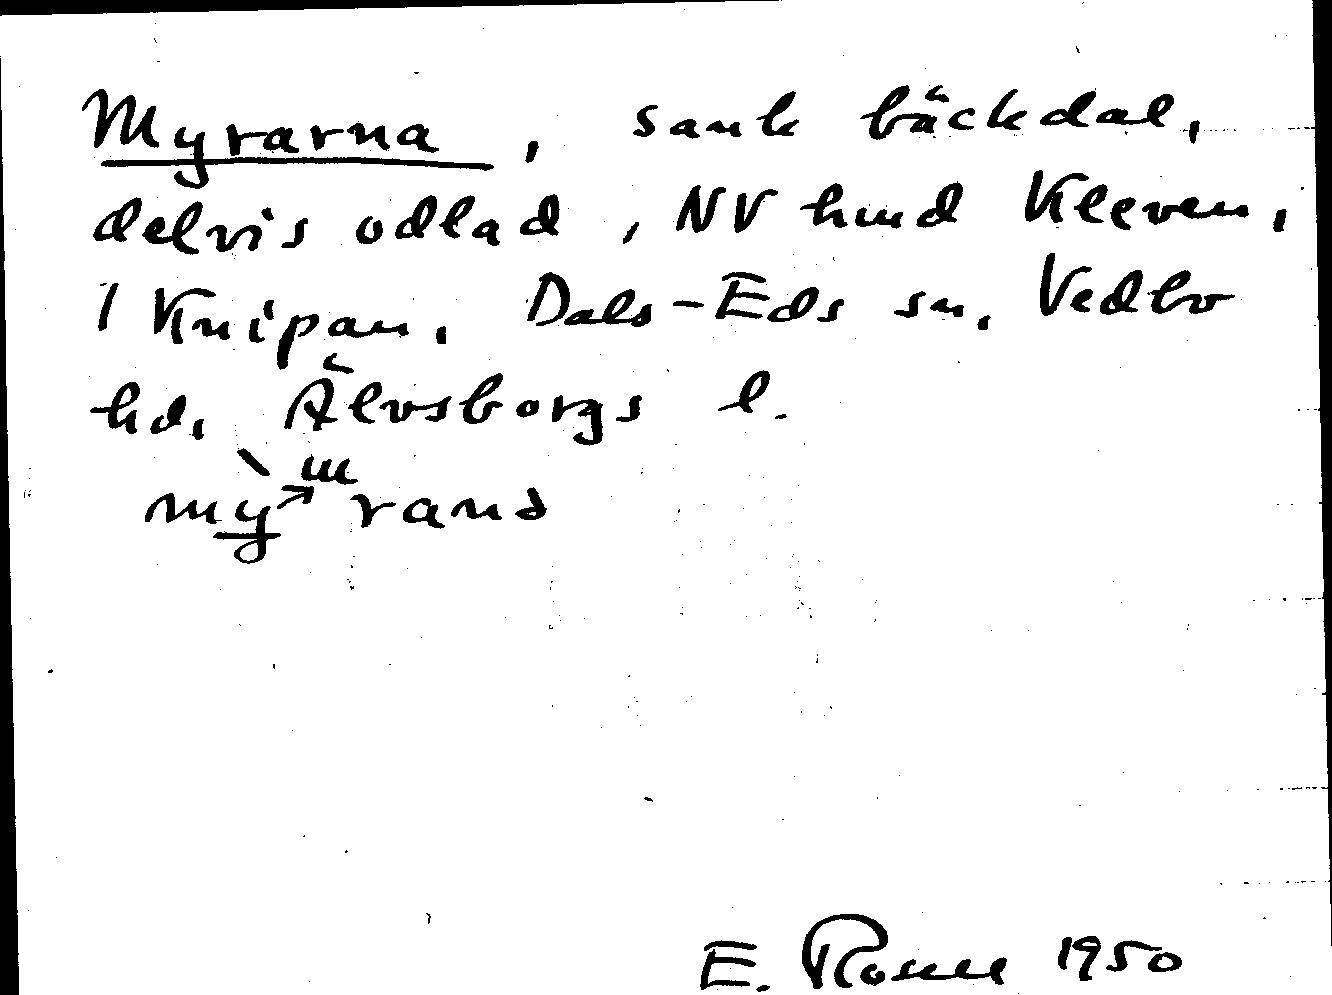 Myrarna, sank bäckdal,
delvis odlad, NV hmd Kleven,
1 Knipan, Dals-Eds sn, Vedbo
hd, Älvsborgs l.
E. Rosell 1950